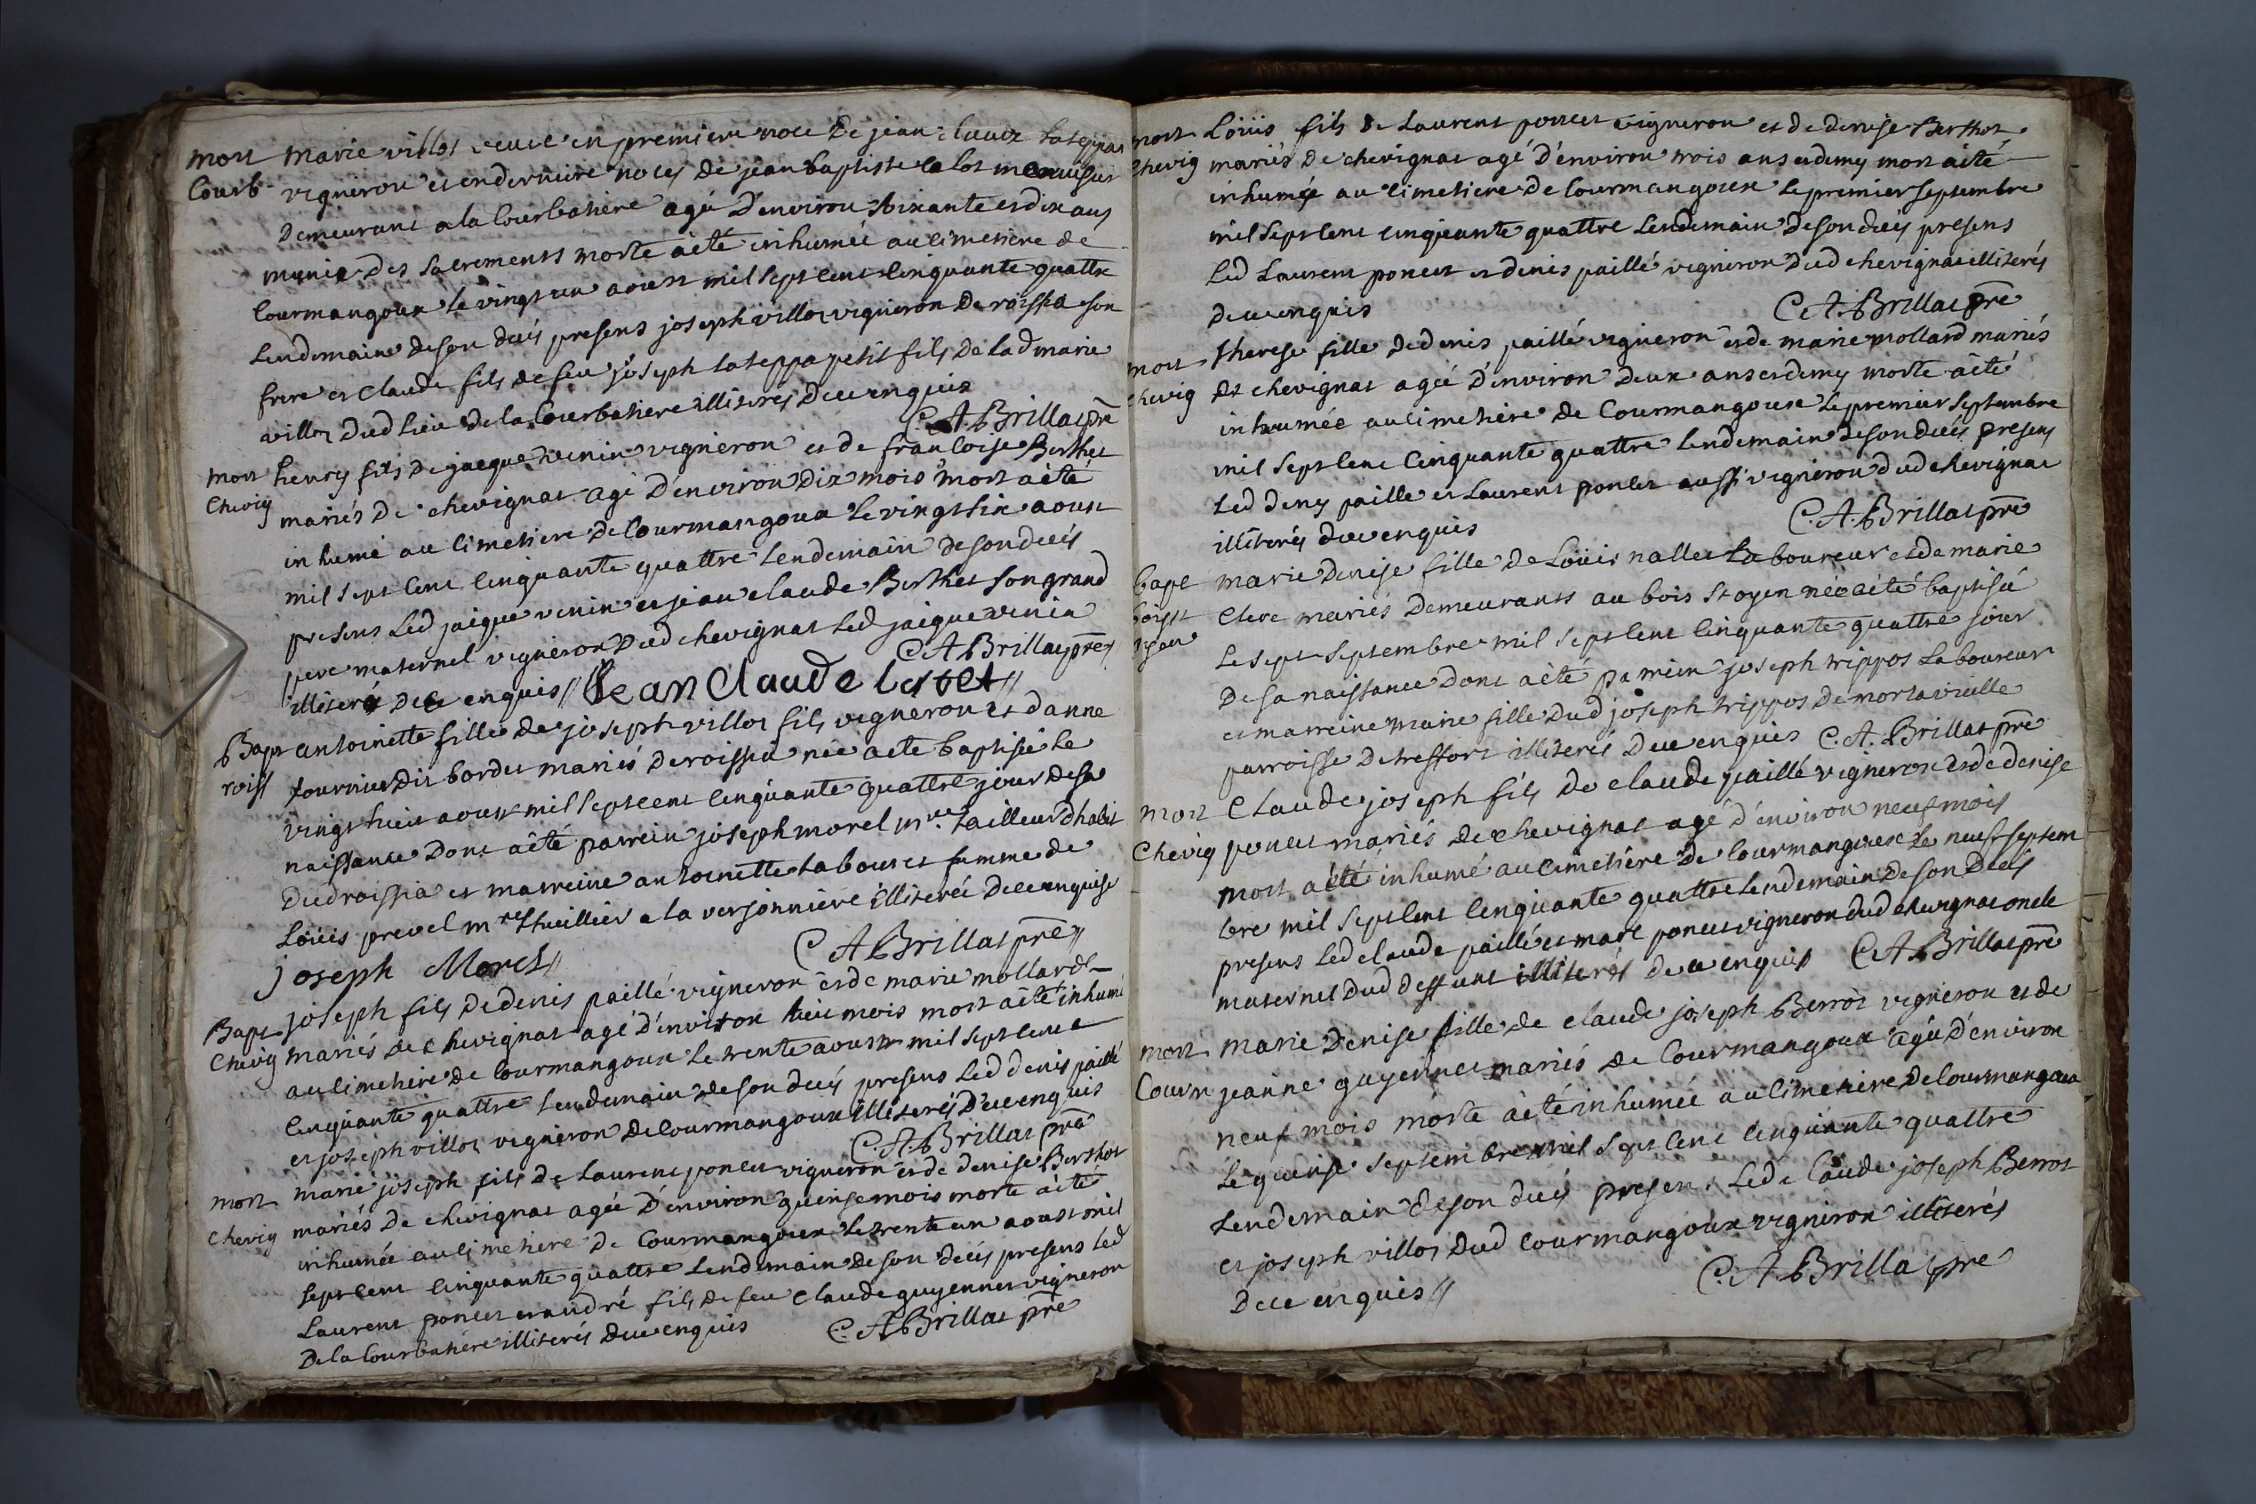 mort marie villot veuve en premiere noce de jean claude lateppa
Courb vigneron et en derniere noces de jean baptiste calot
demeurant a la Courbatiere agée d'environ soixante et dix ans
munie des sacrements morte a été inhumée au cimetiere de
Courmangoux le vingt un aoust mil sept cent cinquante quattre
lendemain de son decés presens joseph villot vigneron de roissia son
frere et claude fils de feu joseph lateppa petit fils de lad marie
villot dud lieu de la Courbatiere illiterés de ce enquis
C. A. Brillat pre
mort henry fils de jacque venin vigneron et de francoise Berthet
Chevig mariés de chevignat agé d'environ dix mois mort a été
inhumé au cimetiere de Courmangoux le vingt six aoust
mil sept cent cinquante quattre lendemain de son decés
presens led jaique venin et jean claude Berthet son grand
pere maternel vigneron dud chevignat led jaique venin
illiteré de ce enquis // C A Brillat pre
Jean Claude //
Bapt antoinette fille de joseph villot fils vigneron et d'anne
roiss fournier dit bordet mariés de roissia née a eté baptisée le
vingt huit aoust mil sept cent cinquante quattre jour de sa
naissance dont a été parrein joseph morel mre tailleur d'habit
dud roissia et marreine antoinette labouret femme de
Loüis prevel mre thuillier a la verjonniere illiterée de ce enquise
joseph Morel // C A Brillat pre //
Bapt joseph fils de denis paillé vigneron et de marie mollard
Chevig mariés de chevignat agé d'environ huit mois mort a été inhumé
au cimetiere de Courmangoux le trente aoust mil sept cent
cinquante quattre lendemain de son decés presens led denis paillé
et joseph villot vigneron de Courmangoux illiterés de ce enquis
C. A. Brillat pre
mort marie joseph fils de Laurent poncet vigneron et de denise Berthot
Chevig mariés de chevignat agée d'environ quinse mois morte a été
inhumée au cimetiere de Courmangoux le trente un aoust mil
sept cent cinquante quattre lendemain de son decés presens led
Laurent poncet et andré fils de feu claude guyennet vigneron
de la Courbatiere illiterés de ce enquis C. A Brillat pre
mort Loüis fils de Laurent poncet vigneron et de denise Berthot
Chevig mariés de chevignat agé d'environ trois ans et demy mort a été
inhumée au cimetiere de Courmangoux le premier septembre
mil sept cent cinquante quattre lendemain de son decés presens
led Laurent poncet et denis paillé vigneron dud chevignat illiterés
de ce enquis C. A. Brillat pre
mort therese fille de denis paillé vigneron et de marie mollard mariés
Chevig de chevignat agée d'environ deux ans et demy morte a été
inhumée au cimetière de Courmangoux le premier septembre
mil sept cent cinquante quattre lendemain de son decés presens
led deny paille et Laurent poncet aussi vigneron dud chevignat
illiterés de ce enquis C. A. Brillat pre
bapt marie denise fille de Loüis nallet laboureur et de marie
boisst Clere mariés demeurants au bois st oyen née a été baptisée
oyan le sept septembre mil sept cent cinquante quattre jour
de sa naissance dont a été parrein joseph trippos laboureur
et marreine marie fille dud joseph trippos de mortavieille
parroisse de treffort illiterés de ce enquis C. A. Brillat pre
mort Claude joseph fils de claude paillé vigneron et de denise
Chevig poncet mariés de chevignat agé d'environ neuf mois
mort a été inhumé au cimetiere de Courmangoux le neuf septem
bre mil sept cent cinquante quattre lendemain de son decés
presens led claude paillé et marc poncet vigneron dud chevignat oncle
maternel dud deffunt illiterés de ce enquis C A Brillat pre
mort marie denise fille de claude joseph Berrot vigneron et de
Courm jeanne guyennet mariés de Courmangoux agée d'environ
neuf mois morte a été inhumée au cimetiere de Courmangoux
le quinse septembre mil sept cent cinquante quattre
lendemain de son decés presens led claude joseph Berrot
et joseph villot dud Courmangoux vigneron illiterés
de ce enquis // C. A Brillat pre